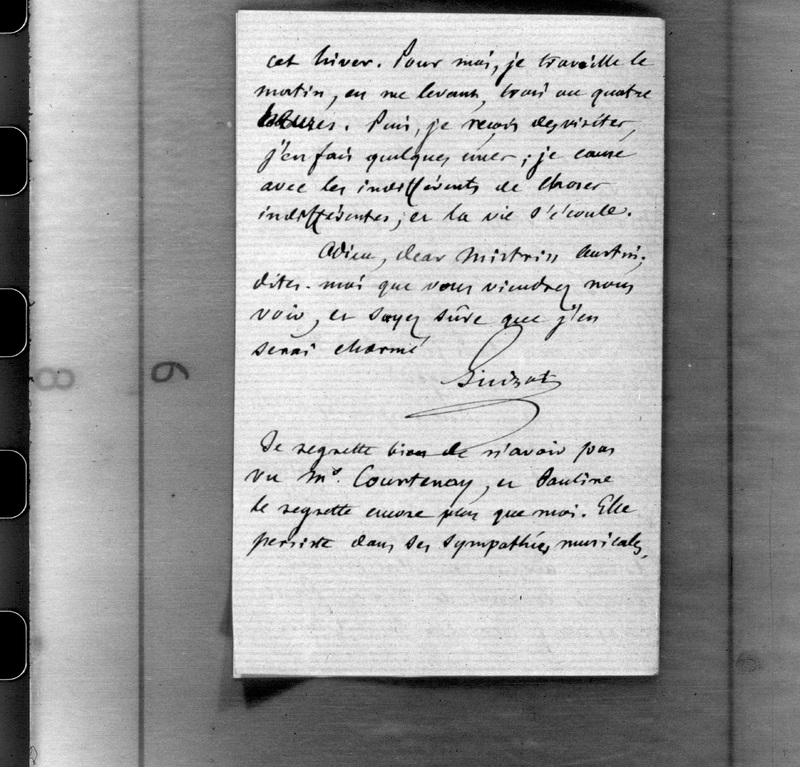 cet hiver. Pour moi, je travaille le
matin, en me levant, trois ou quatre
heures. Puis, je reçois des visites,
j'en fais quelques unes; je cause
avec les indifférents de choses
indifférentes; et la vie s'écoule.
Adieu, dear Mistriss Austin;
dites-moi que vous viendrez nous
voir, et soyez sûre que j'en
serai charmé
Guizot
Je regrette bien de n'avoir pas
vu Mrs. Courtenay, et Pauline
le regrette encore plus que moi. Elle
persiste dans ses sympathies musicales.
8
6